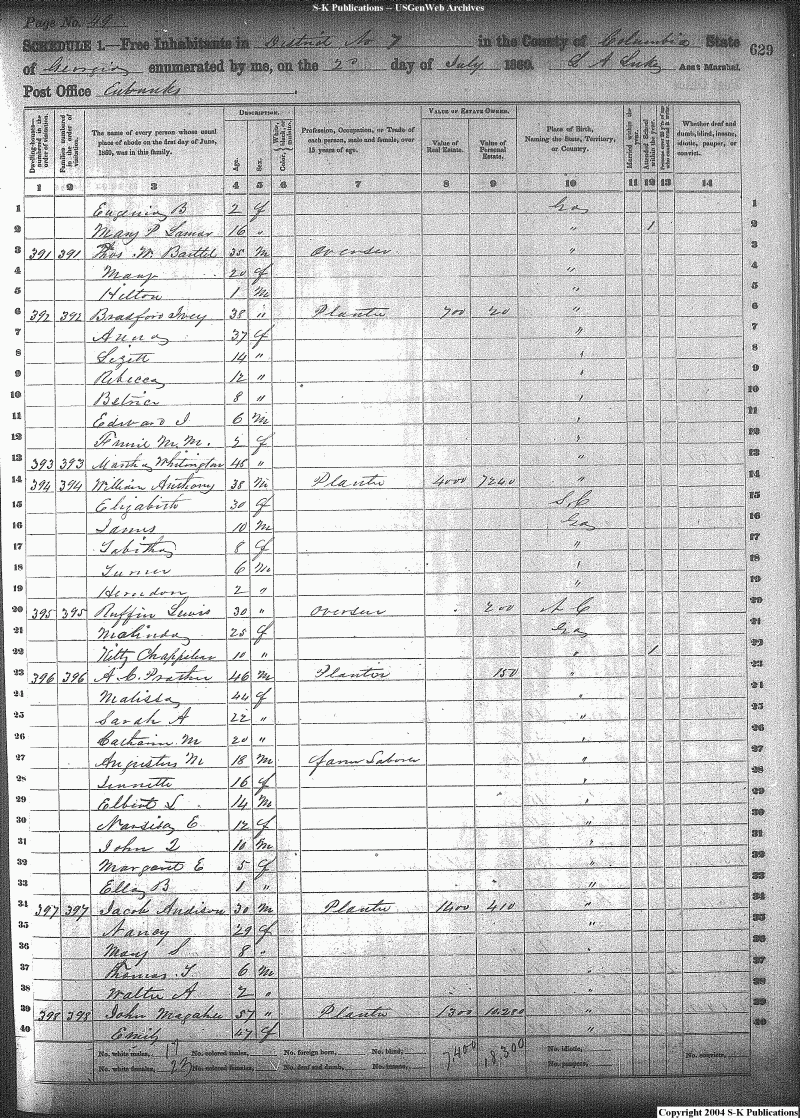 S-K Publications -- USGenWeb Archives
Page No. 49
SCHEDULE 1.—Free Inhabitants in District No 7 in the County of Columbia State
of Georgia enumerated by me, on the 2d day of July 1860. L A Luke Ass't Marshal.
629
Post Office Eubanks
DESCRIPTION. VALUE OF ESTATE OWNED.
Dwelling-houses—numbered in the order of visitation. Families numbered in the order of visitation. The name of every person whose usual place of abode on the first day of June, 1860, was in this family. Age. Sex. Color, White, black, or mulatto. Profession, Occupation, or Trade of each person, male and female, over 15 years of age. Value of Real Estate. Value of Personal Estate. Place of Birth, Naming the State, Territory, or Country. Married within the year. Attended School within the year. Whether deaf and dumb, blind, insane, idiotic, pauper, or convict.
1 2 3 4 5 6 7 8 9 10 11 12 13 14
1 Eugenia B 2 f Geo 1
2 Mary P Lamar 16 " " 1 2
3 391 391 Thos. W. Barttel 35 m Overseer " 3
4 Mary 20 f " 4
5 Hilton 1 m " 5
6 392 392 Bradford Ivey 38 " Planter 700 20 " 6
7 Anna 37 f " 7
8 Lizett 14 " " 8
9 Rebecca 12 " " 9
10 Betrice 8 " " 10
11 Edward J 6 m " 11
12 M. M. f " 12
13 393 393 Martha Whitington 45 " " 13
14 394 394 William Anthony 38 m Planter 4000 7240 " 14
15 Elizabeth 30 f S. C 15
16 James 10 m Geo 16
17 Tabitha 8 f " 17
18 Turner 6 m " 18
19 Herndon 2 " " 19
20 395 395 Ruffin Lewis 30 " Overseer 200 N C 20
21 Malinda 25 f Geo 21
22 Kitty Chappelear 10 " " 1 22
23 396 396 A. C. Prather 46 m Planter 150 " 23
24 Malissa 44 f " 24
25 Sarah A 22 " " 25
26 Catharin M 20 " " 26
27 Augustus M 18 m farm Laborer " 27
28 Jennette 16 f " 28
29 Elbert S 14 m " 29
30 Narsisa E 12 f " 30
31 John Q 10 m " 31
32 Margaret E 5 f " 32
33 Ella B 1 " " 33
34 397 397 Jacob Andison 30 m Planter 1400 410 " 34
35 Nancy 29 f " 35
36 Mary S 8 " " 36
37 Thomas J 6 m " 37
38 Walter A 2 " " 38
39 398 398 John Magahee 57 " Planter 1300 10.280 " 39
40 Emily 47 f " 40
No. white males, 17 No. colored males, No. foreign born, No. blind, 7,400 18,300 No. idiotic, No. convicts,
No. white females, 23 No. colored females, No. deaf and dumb, No. insane, No. paupers,
Copyright 2004 S-K Publications